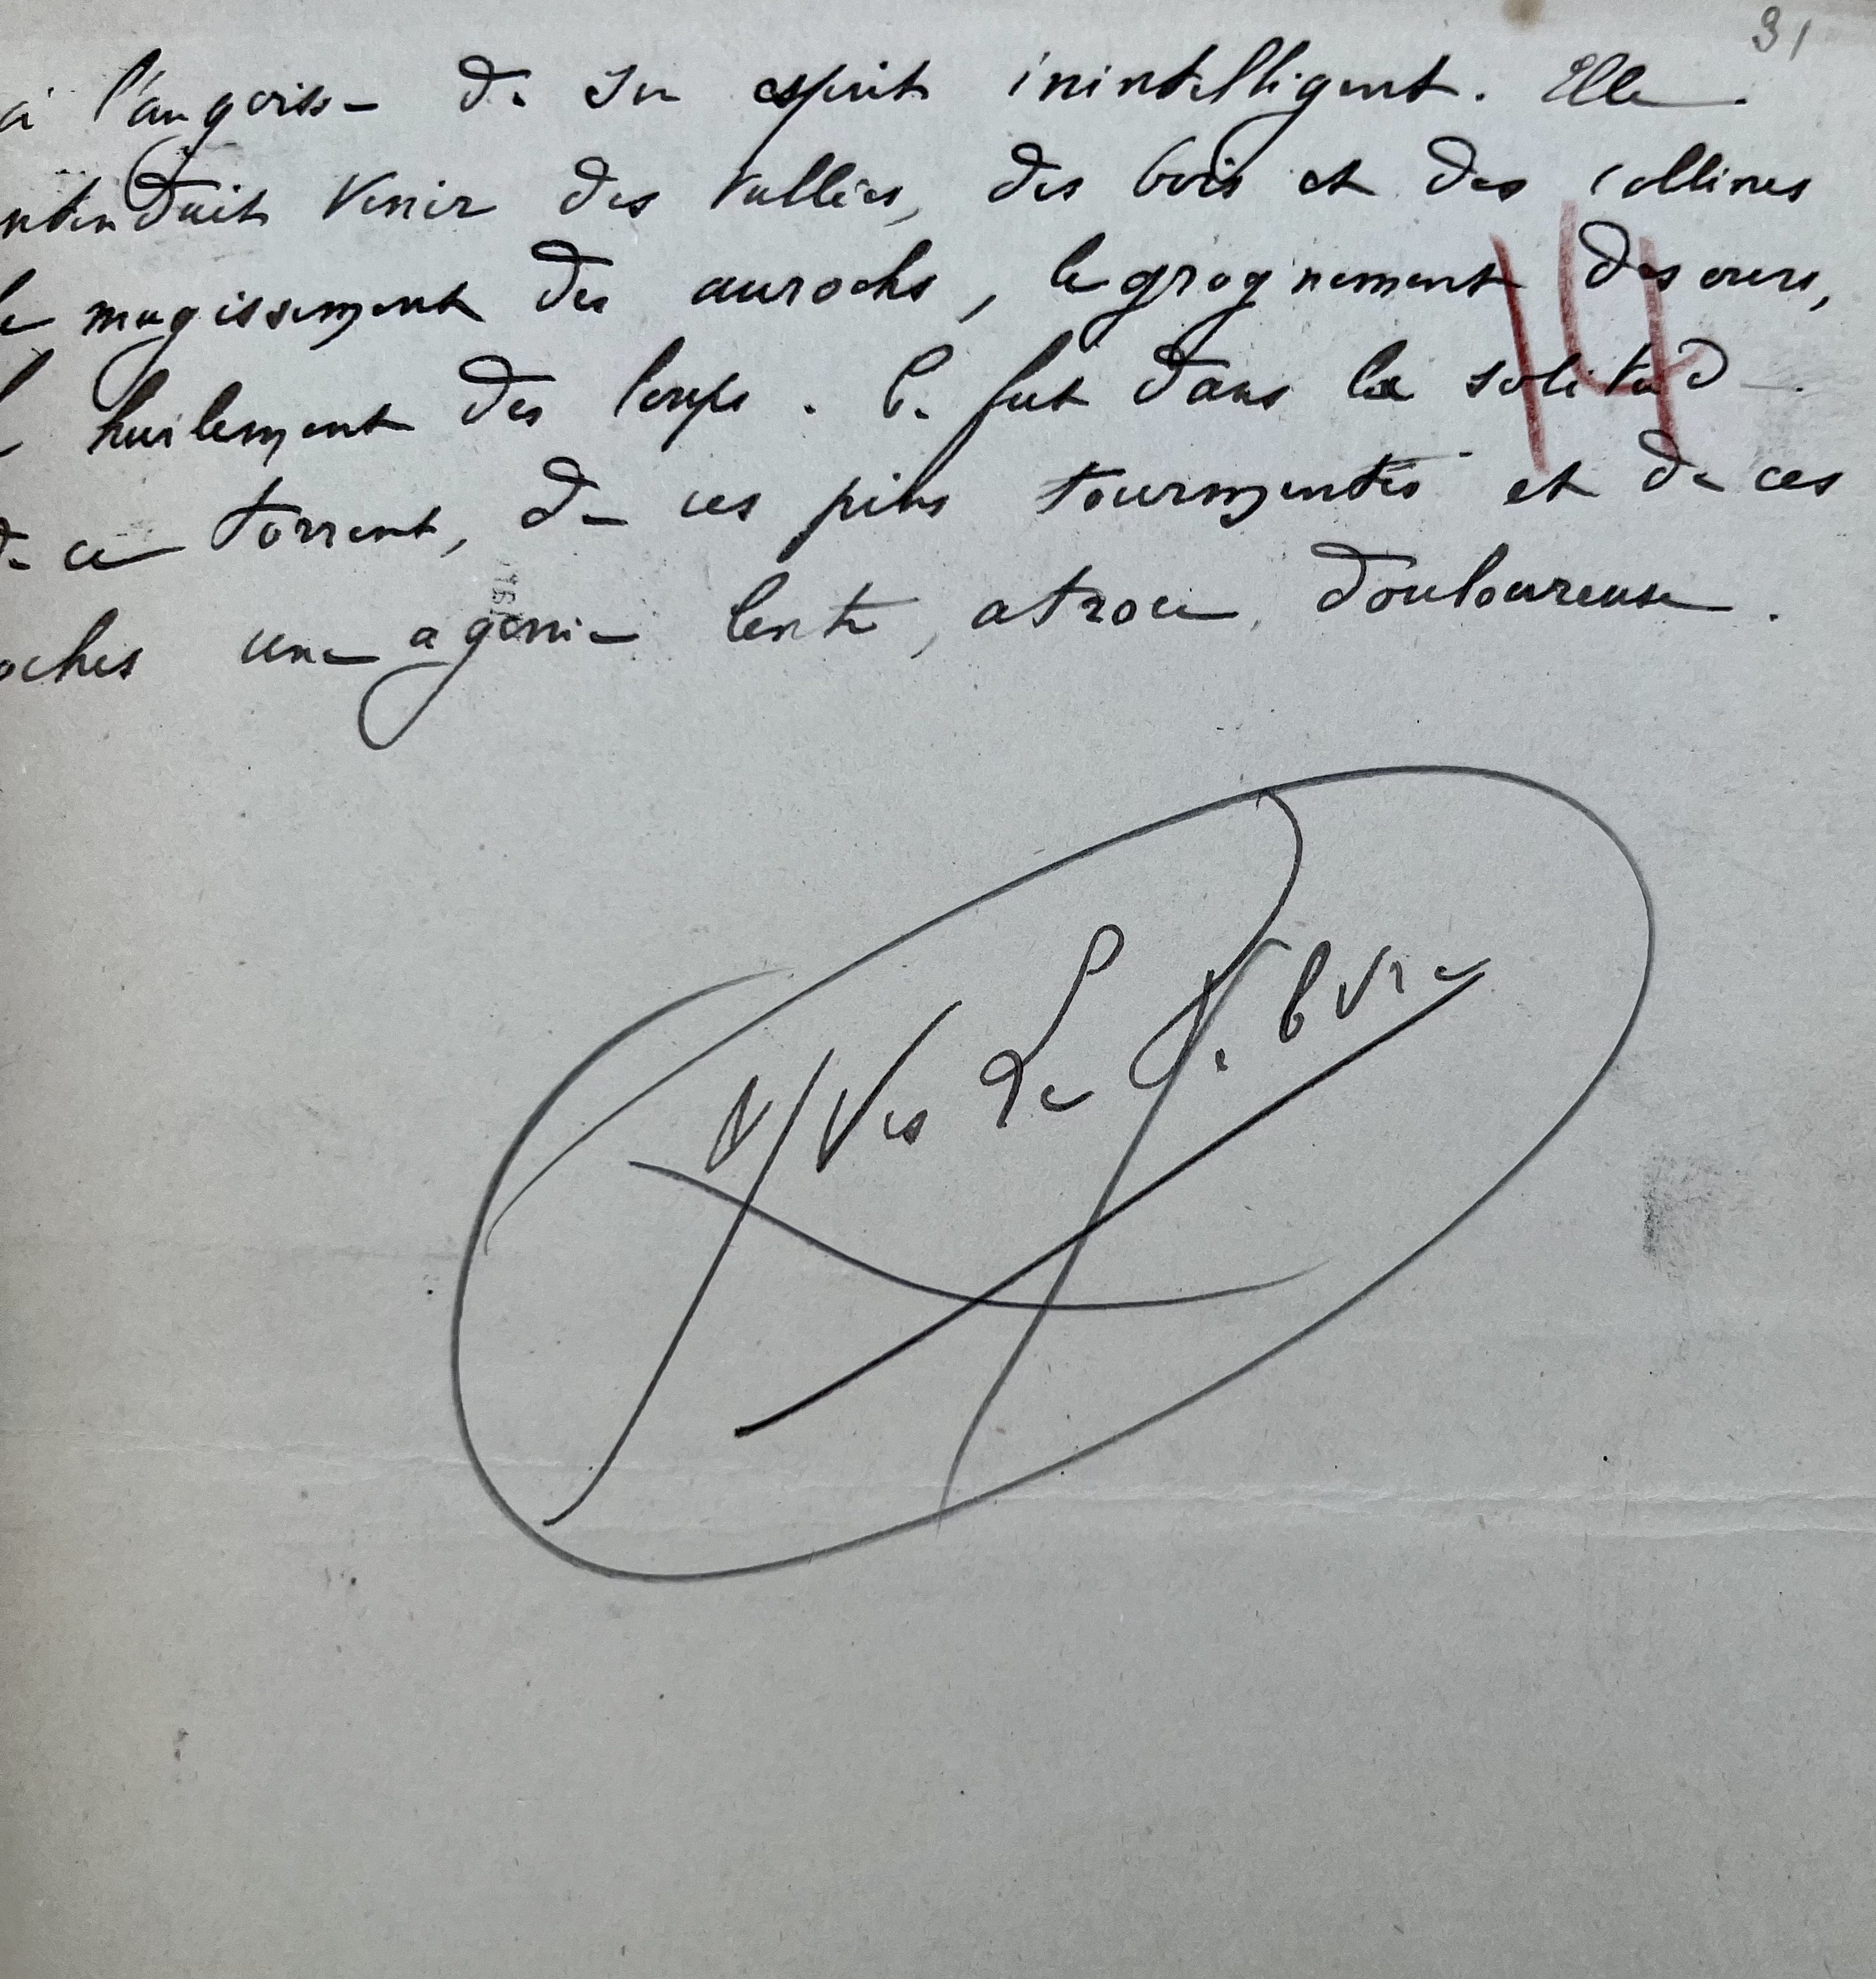 31
à l'angoisse de son esprit inintelligent. Elle
ntendait venir des vallées, des bois et des collines
le mugissement des aurochs, le grognement des ours,
l huilement des loups. Ce fut dans la solitude
de ce torrent, de ces pins tourmentés et de ces
oches une agonie lente, atroce, douloureuse.
14
Yves Le Febvre